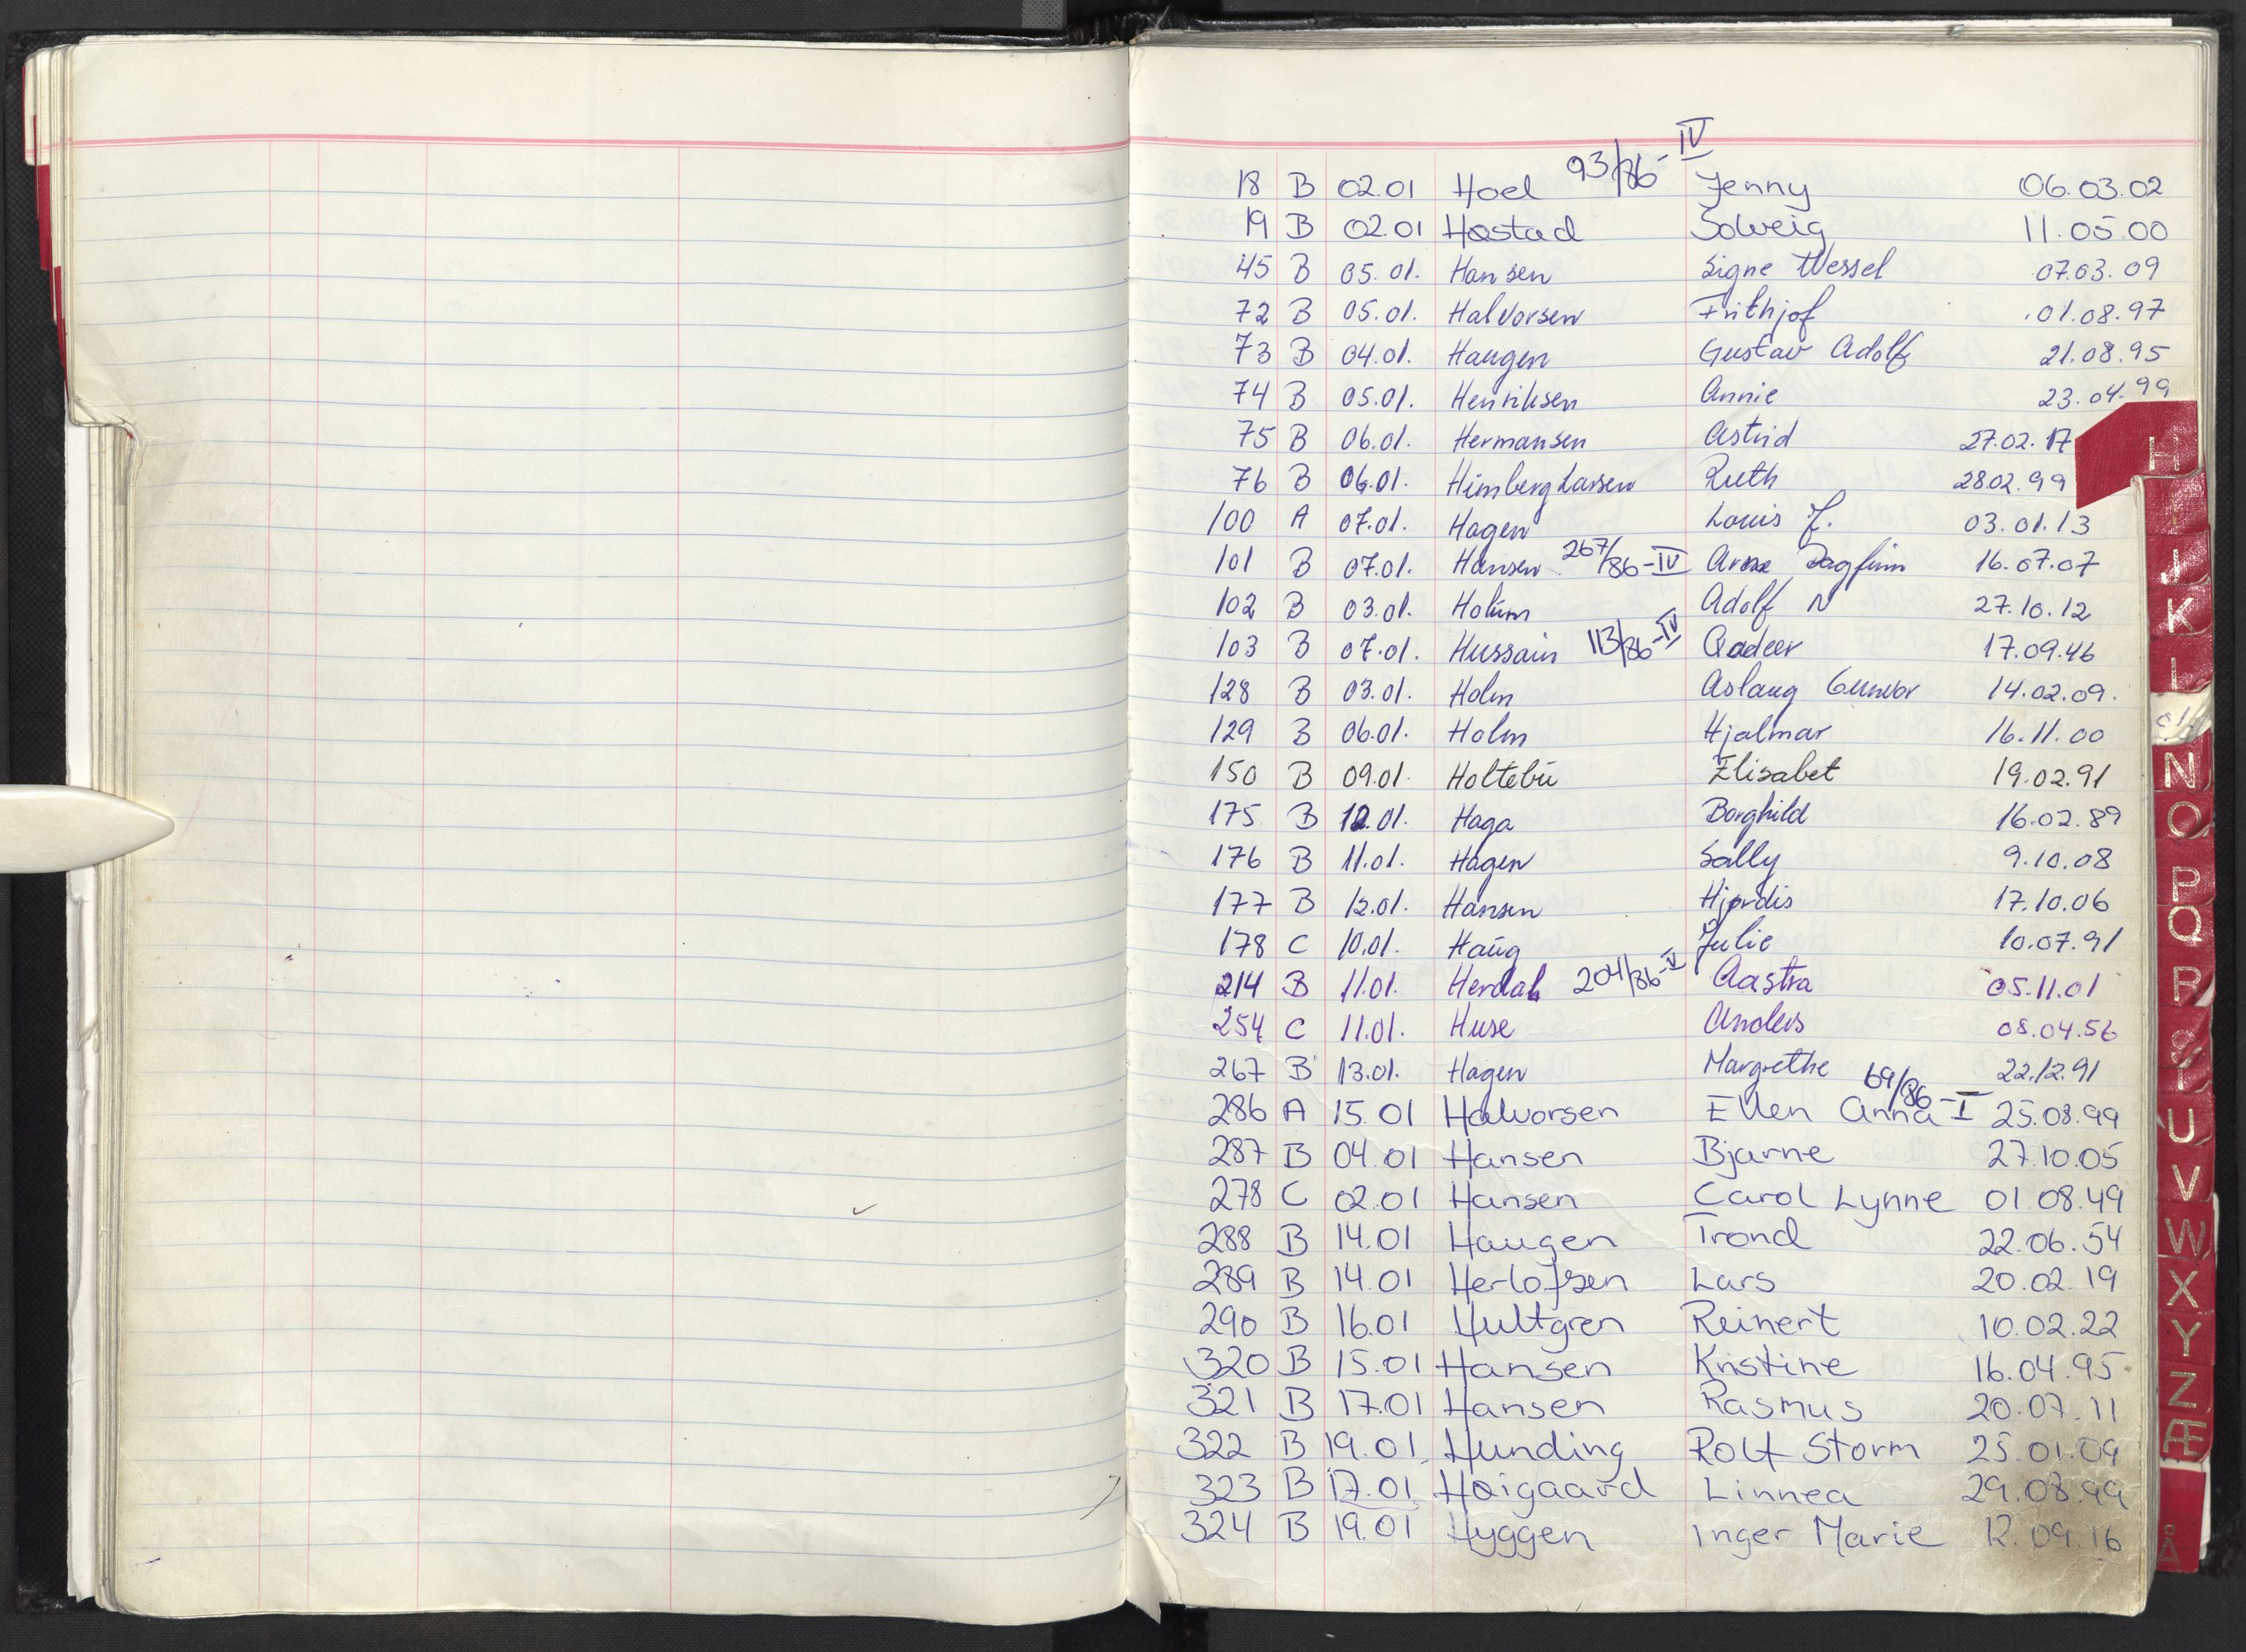 18 B 02.01 Hoel 93/86-IV Jenny 06.03.02
19 B 02.01 Høstad Solveig 11.05.00
45 B 05.01. Hansen Signe Wessel 07.03.09
72 B 05.01. Halvorsen Frithjof 01.08.97
73 B 04.01. Haugen Gustav Adolf 21.08.95
74 B 05.01. Henriksen Annie 23.04.99
75 B 06.01. Hermansen Astrid 27.02.17
76 B 06.01. Himberg Larsen Ruth 28.02.99
100 A 07.01. Hagen Louis J. 03.01.13
101 B 07.01. Hansen 267/86-IV Arne Dagfinn 16.07.07
102 B 03.01. Holum Adolf N 27.10.12
103 B 07.01. Hussain 113/86-IV Qadeer 17.09.46
128 B 03.01. Holm Aslaug Gunvor 14.02.09.
129 B 06.01. Holm Hjalmar 16.11.00
150 B 09.01. Holtebu Elisabet 19.02.91
175 B 12.01. Haga Borghild 16.02.89
176 B 11.01. Hagen Sally 9.10.08
177 B 12.01. Hansen Hjørdis 17.10.06
178 C 10.01. Haug Julie 10.07.91
214 B 11.01. Herdal 204/86-V Aastra 05.11.01
254 C 11.01. Huse Anders 08.04.56
267 B 13.01. Hagen Margrethe 22.12.91
286 A 15.01 Halvorsen Ellen Anna 69/86-I 25.08.99
287 B 04.01 Hansen Bjarne 27.10.05
278 C 02.01 Hansen Carol Lynne 01.08.49
288 B 14.01 Haugen Trond 22.06.54
289 B 14.01 Herlofsen Lars 20.02.19
290 B 16.01 Hultgren Reinert 10.02.22
320 B 15.01 Hansen Kristine 16.04.95
321 B 17.01 Hansen Rasmus 20.07.11
322 B 19.01 Hunding Rolf Storm 25.01.09
323 B 17.01 Høigaard Linnea 29.08.99
324 B 19.01 Hyggen Inger Marie 12.09.16
H
J
K
L
N
O
P
Q
R
S
T
U
V
W
X
Y
Z
Æ
Å